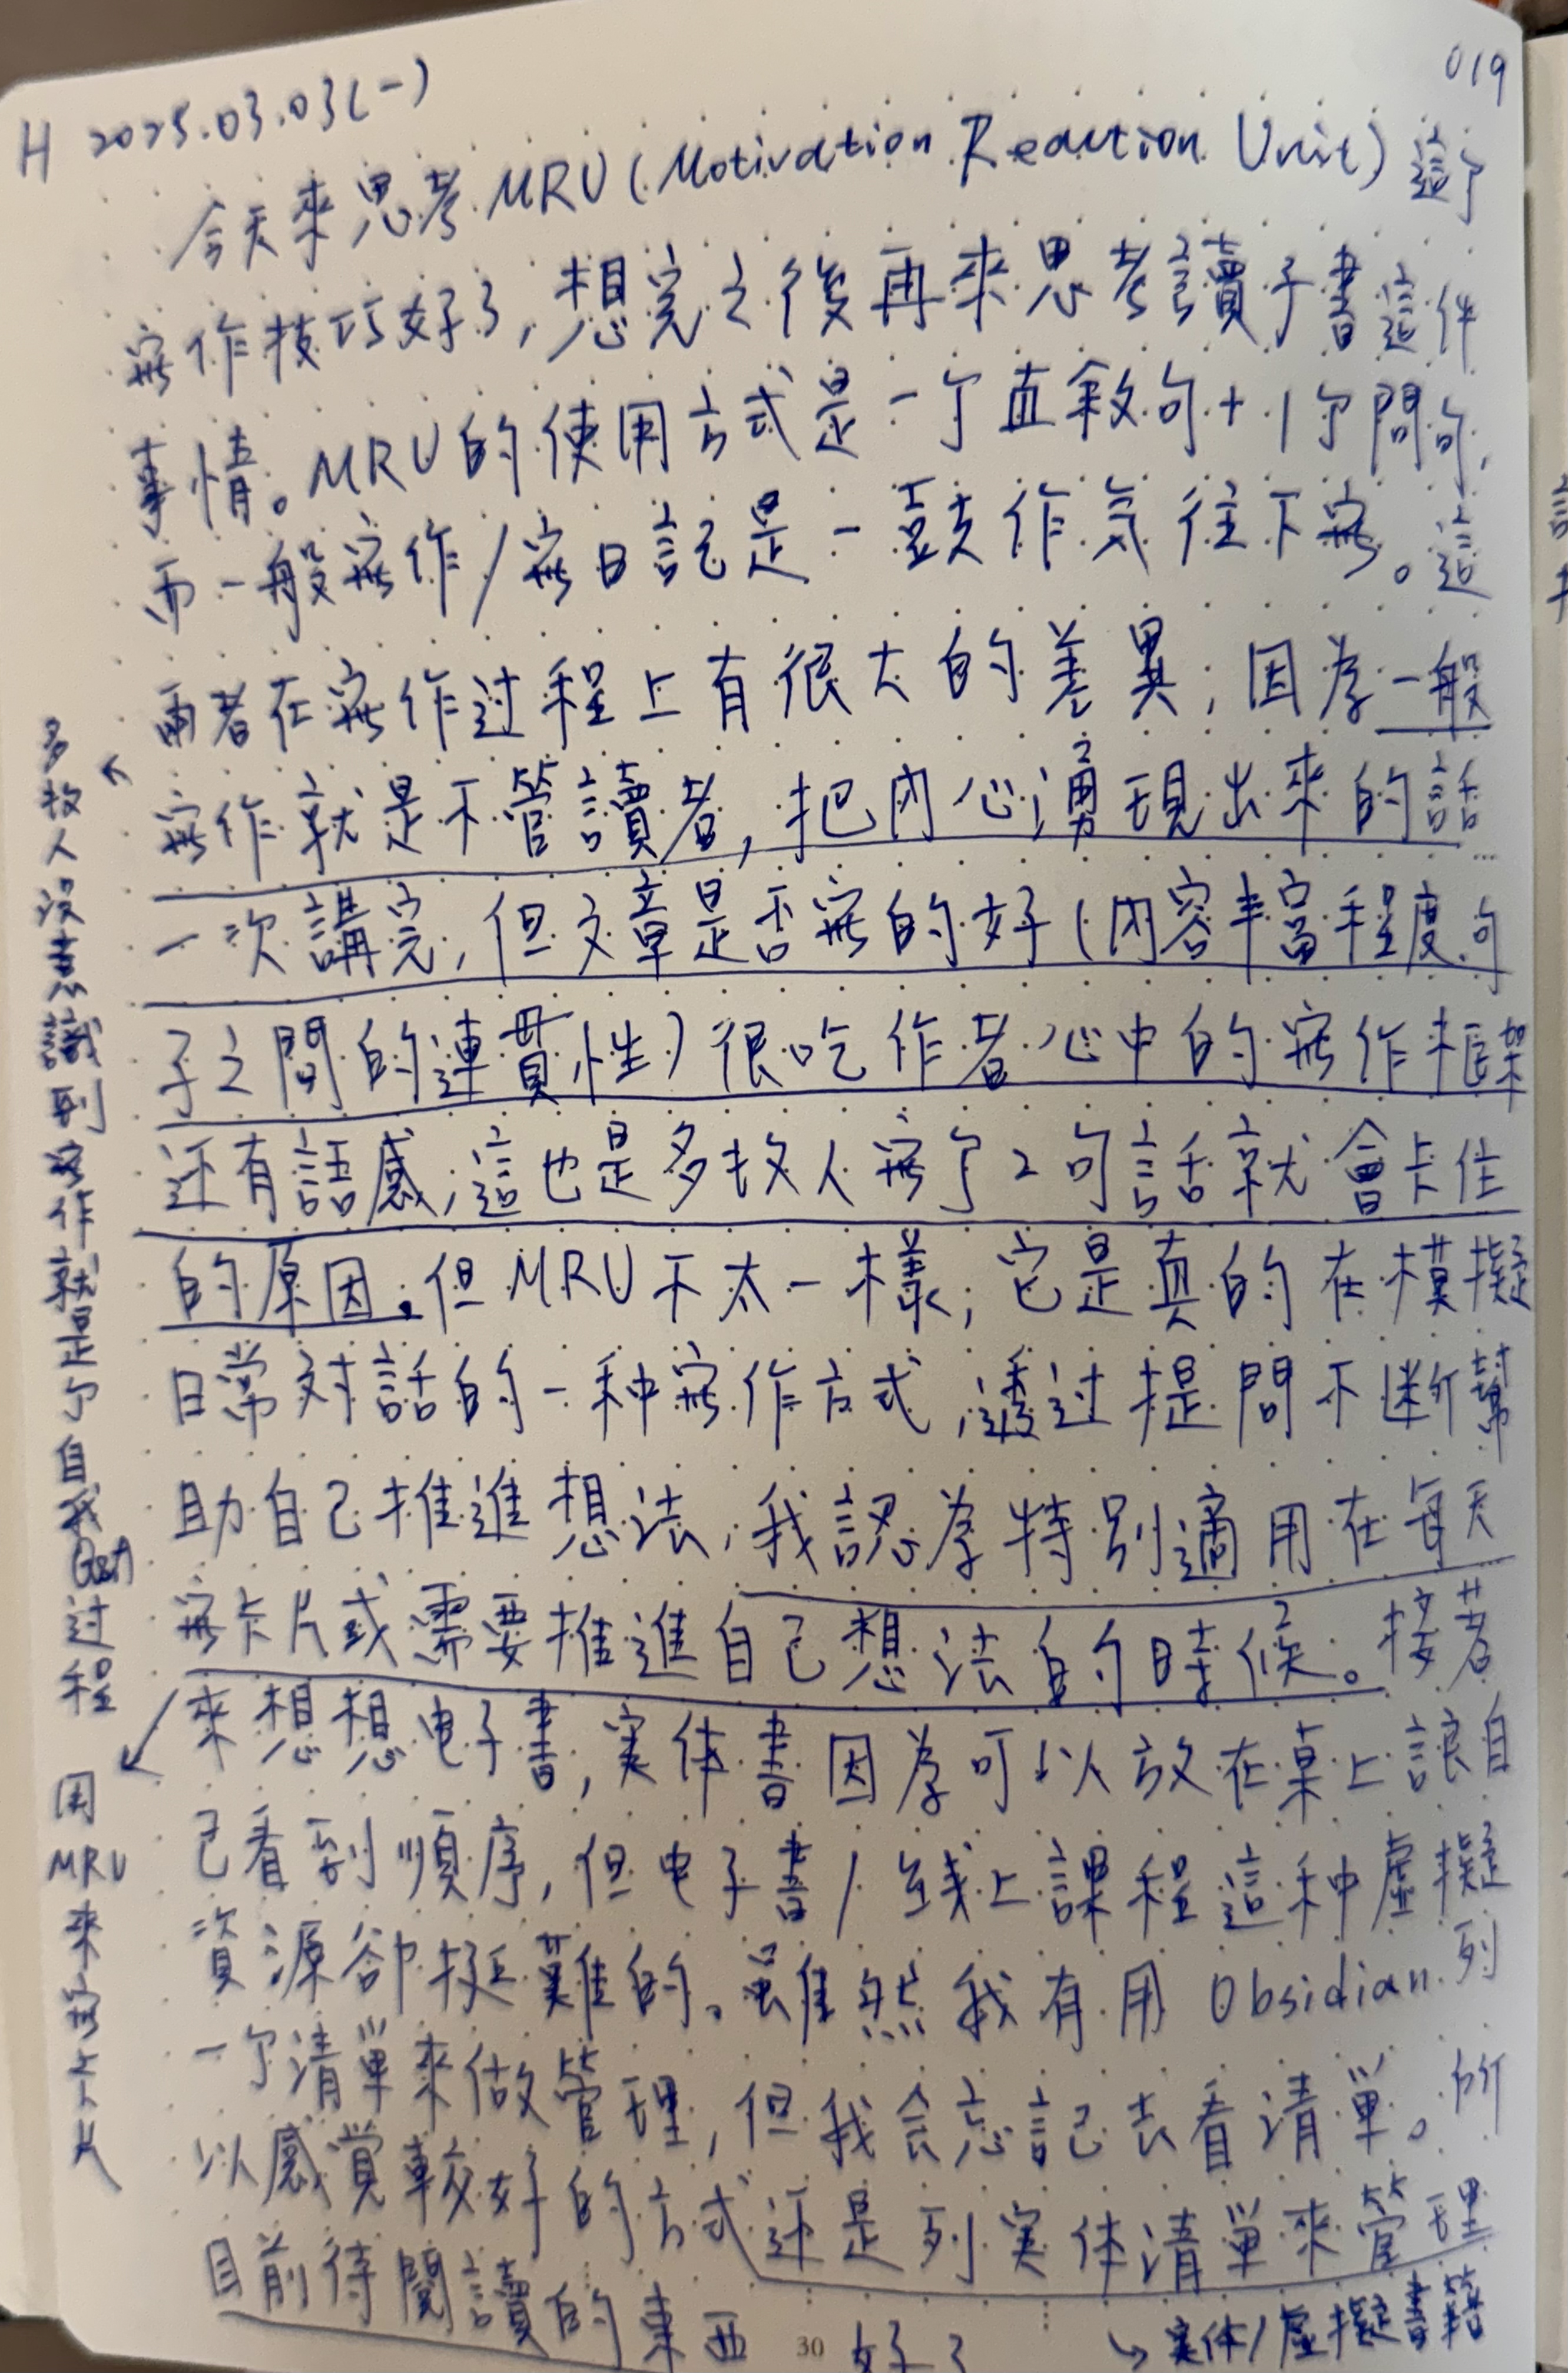 019
H 2025.03.03(一)
今天來思考MRU(Motivation Reaction Unit)這个
寫作技巧好了,想完之後再來思考讀子書這件
事情。MRU的使用方式是一个直敘句+1个問句,
而一般寫作/寫日記是一鼓作気往下寫。這
兩者在寫作过程上有很大的差異;因為一般
寫作就是不管讀者,把內心湧現出來的話
一次講完,但文章是否寫的好(內容丰富程度、句
子之間的連貫性)很吃作者心中的寫作框架
还有語感,這也是多数人寫了2句話就會卡住
的原因。但MRU不太一樣,它是真的在模擬
日常対話的一种寫作方式,透过提問不断幫
助自己推進想法,我認為特別適用在每天
寫卡片或需要推進自己想法的時候。接著
來想想电子書,実体書因為可以放在桌上讓自
己看到順序,但电子書/线上課程這种虛擬
資源卻挺難的。雖然我有用Obsidian列
一个清單來做管理,但我会忘記去看清單。所
以感覺較好的方式还是列実体清單來管理
目前待閱讀的東西 好了
↳実体/虛擬書籍
多数人沒意識到寫作就是个自我Q&A过程
用MRU來寫卡片
30